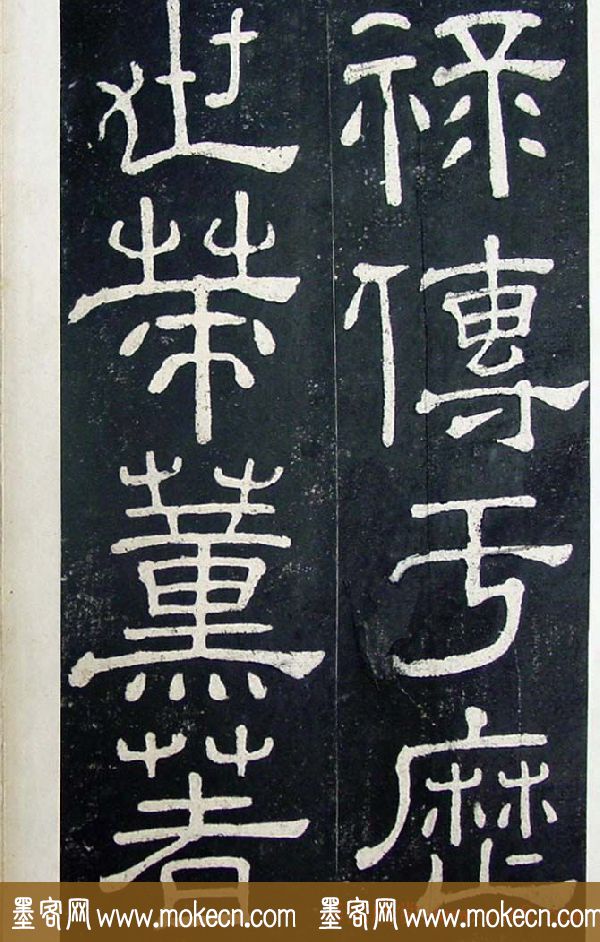 祿傳于歷
世策薰著
墨客网 www.mokecn.com 墨客网 www.mokecn.com